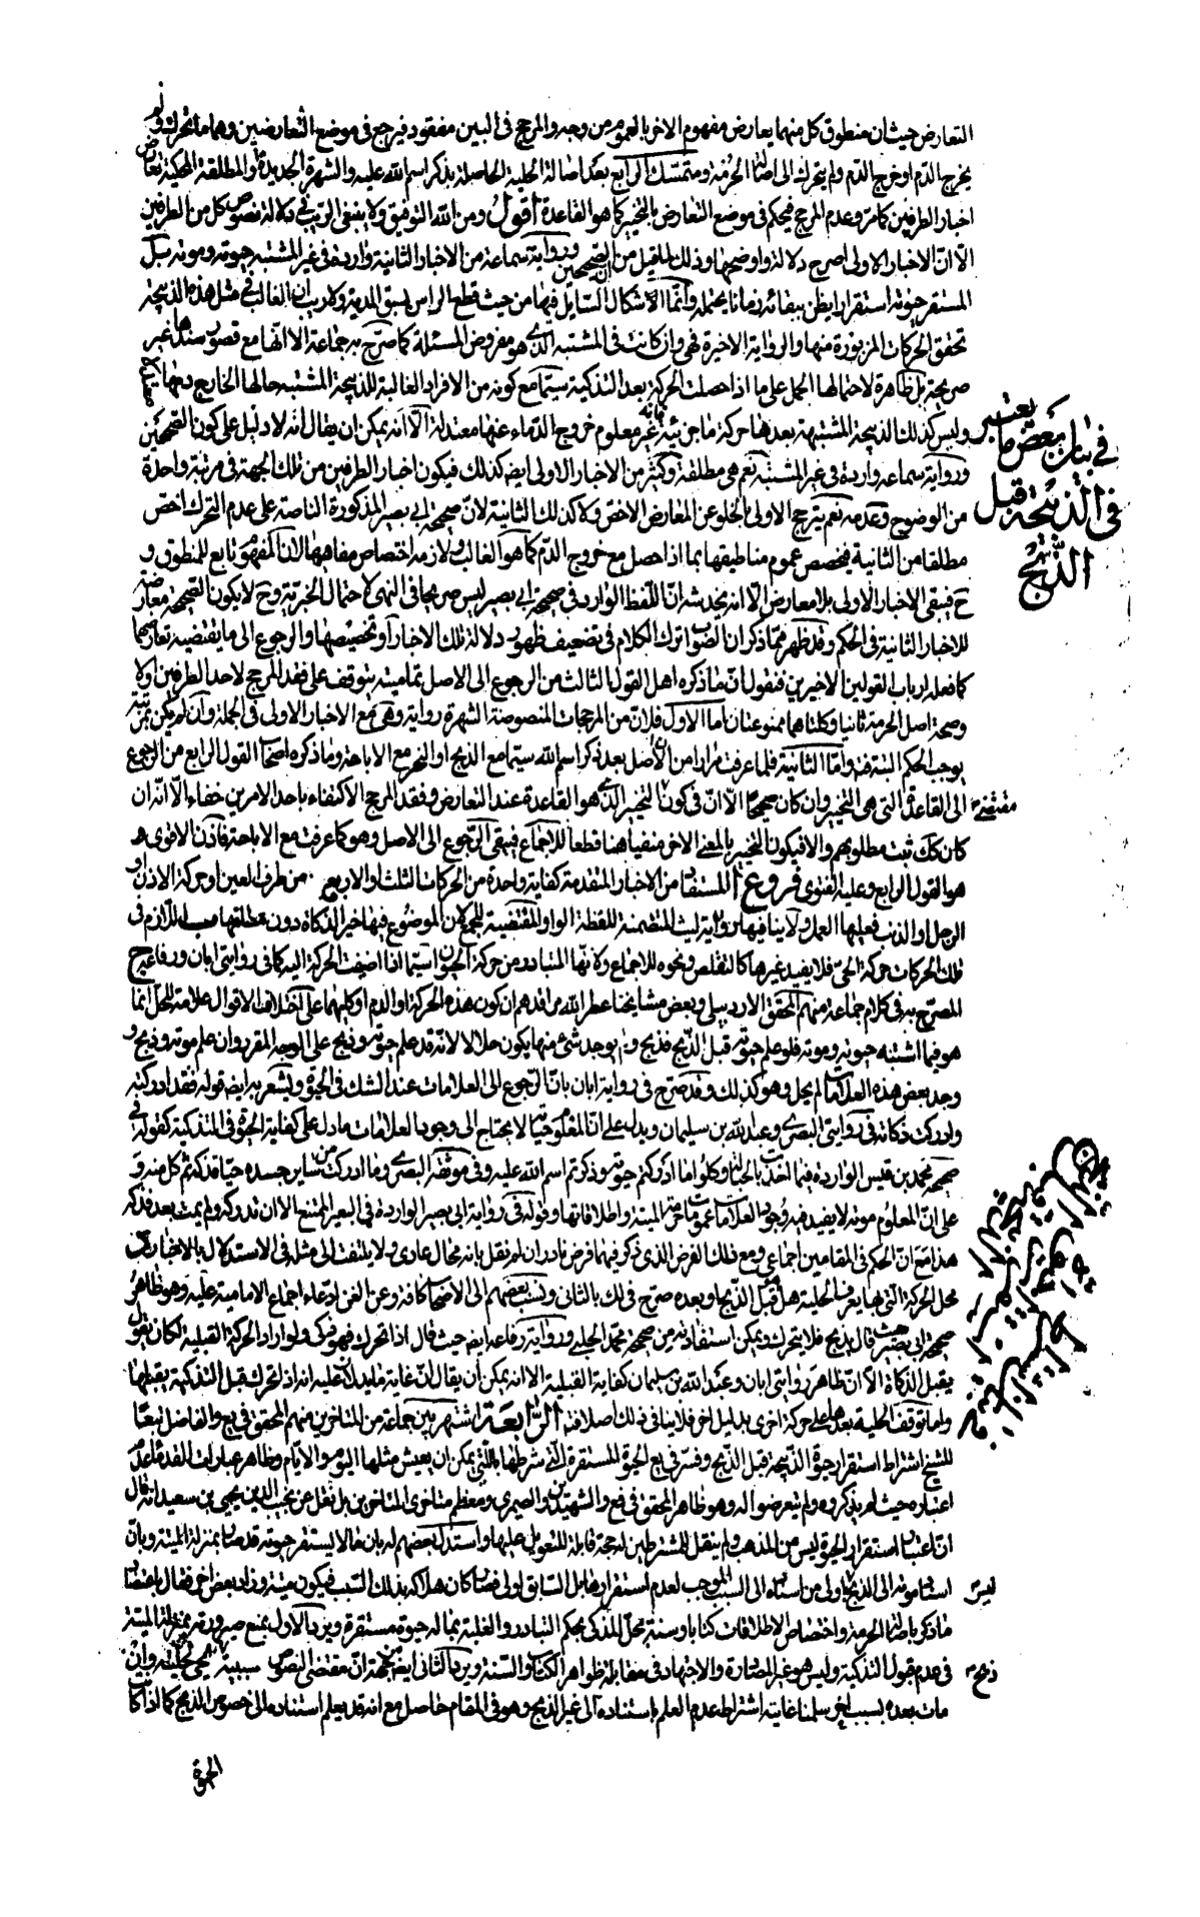 التعارض حيث ان منطوق كل منهما يعارض مفهوم الاخر بالعموم من وجه والمرجح فى البين مفقود فيرجع فى موضع التعارضين وهما ما تحرك ولم
يخرج الدم او خرج الدم ولم يتحرك الى اصالة الحرمة ومتمسك الرابع بعد اصالة الحلية الحاصلة بذكر اسم الله عليه والشهرة الجديدة والمطلقة المحكية تعارض
اخبار الطرفين كما مر وعدم المرجح فيحكم فى موضع التعارض بالتخيير كما هو القاعدة اقول ومن الله التوفيق ولا ينبغى الريب فى دلالة نصوص كل من الطرفين
الا ان الاخبار الاولى اصرح دلالة واوضحها وذلك لما قيل من ان الصحيحين ورواية سماعة من الاخبار الثانية واردة فى غير المشتبه حيوته وموته بل
المستقر حيوته استقرارا يظن ببقائه زمانا يحتمله وانما الاشكال السائل فيها من حيث قطع الراس بسبق المدية ولا ريب ان الغالب فى مثل هذه الذبيحة
تحقق الحركات المزبورة منها والرواية الاخيرة فهى وان كانت فى المشتبه الذى هو مفروض المسئلة كما صرح به جماعة الا انها مع قصور سندها غير
صريحة بل ظاهرة لاحتمالها الحمل على ما اذا حصلت الحركة بعد التذكية سيما مع كونه من الافراد الغالبة للذبيحة المشتبه حالها الخارج دمها
وليس كذلك الذبيحة المشتبهة بعدها حركة ما جزئية فانه غير معلوم خروج الدماء عنها معتدلة الا انه يمكن ان يقال انه لا دليل على كون الصحيحين
ورواية سماعة واردة فى غير المشتبه نعم هى مطلقة وكثير من الاخبار الاولى ايضا كذلك فيكون اخبار الطرفين من تلك الجهة فى مرتبة واحدة
من الوضوح وعدمه نعم يترجح الاولى بالخلو عن المعارض الاخص ولا كذلك الثانية لان صحيحة ابى بصير المذكورة الناصة على عدم التحرك اخص
مطلقا من الثانية فيخصص عموم مناطيقها بما اذا حصل مع خروج الدم كما هو الغالب ولازمه اختصاص مفاهيمها لان المفهوم تابع للمنطوق و
ح فيبقى الاخبار الاولى بلا معارض الا انه يخدشه ان اللفظ الوارد فى صحيحة ابى بصير ليس صريحا فى النهى لاحتمال الخبرية وح لا يكون الصحيحة معارضة
للاخبار الثانية فى الحكم وقد ظهر مما ذكر ان الصواب ترك الكلام فى تضعيف ظهور دلالة تلك الاخبار او تخصيصها والرجوع الى ما يقتضيه تعارضهما
كما فعله ارباب القولين الاخيرين فنقول ان ما ذكره اهل القول الثالث من الرجوع الى الاصل بتماميته يتوقف على فقد المرجح لاحد الطرفين اولا
وصحة اصل الحرمة ثانيا وكلتاهما ممنوعتان اما الاول فلان من المرجحات المنصوصة الشهرة رواية وهى مع الاخبار الاولى فى الجملة وان لم يكن بمرتبة
يوجب الحكم البتة فتدبر واما الثانية فلما عرفت مرارا من ان الاصل بعد ذكر اسم الله سيما مع الذبح او النحر مع الاباحة وما ذكره اصحاب القول الرابع من الرجوع
الى مقتضى القاعدة التى هى التخيير وان كان صحيحا الا ان فى كون التخيير الذى هو القاعدة عند التعارض وفقد المرجح الاكتفاء باحد الامرين خفاء الا انه ان
كان كك ثبت مطلوبهم والا فيكون التخيير بالمعنى الاخر منفيا هنا قطعا للاجماع فيبقى الرجوع الى الاصل وهو كما عرفت مع الاباحة فاذن الاقوى
هو القول الرابع وعليه الفتوى فروع ا المستفاد من الاخبار المتقدمة كفاية واحدة من الحركات الثلث او الاربع من طرف العين او حركة الاذن او
الرجل او الذنب فعليها العمل ولا ينافيها رواية ليث المتضمنة للفظة الواو المقتضية للجمع لان الموضوع فيها خير الذكاة دون مطلقها ب اللازم فى
تلك الحركات حركة الحى فلا يفيد غيرها كالتقلص ونحوه للاجماع ولانها المتبادر من حركة الحيوان سيما اذا اضيفت الحركة اليه كما فى روايتى ابان ورفاعة ج
المصرح به فى كلام جماعة منهم المحقق الاردبيلى وبعض مشايخنا عطر الله مراقدهم ان كون هذه الحركة او الدم او كليهما على اختلاف الاقوال علامة للحل انما
هو فيما اشتبه حيوته وموته فلو علم حيوته قبل الذبح فذبح ولم يوجد شئ منها يكون حلالا لانه قد علم حيوته وذبح على الوجه المقرر وان علم موته وذبح و
وجد بعض هذه العلامات لم يحل وهو كذلك وقد صرح فى رواية ابان بان الرجوع الى العلامات عند الشك فى الحيوة ويشعر به ايضا قوله فقد ادركته
وادركت ذكاته فى روايتى البصرى وعبد الله بن سليمان ويدل على ان المعلوم حيا لا يحتاج الى وجود العلامات ما دل على كفاية الحيوة فى التذكية كقوله فى
صحيحة محمد بن قيس الواردة فيما اخذت بالحبالة وكلوا ما ادركتم حيوته وذكرتم اسم الله عليه وفى موثقة البصرى وما ادركت من سائر جسده حيا فذكه ثم كل منه و
على ان المعلوم موته لا يفيد فيه وجود العلامات عمومات حرمة الميتة واطلاقاتها وقوله فى رواية ابى بصير الواردة فى البعير الممتنع الا ان تدركه ولم يمت بعد فذكه
هذا مع ان الحكم فى المقامين اجماعى ومع ذلك الفرض الذى ذكر فيهما فرض نادر ان لم نقل بانه محال عادى ولا يلتفت الى مثله فى الاستدلال بالاخبار
محل الحركة التى بها يعرف الحلية هل هو قبل الذبح او بعده صرح فى لك بالثانى ونسبه بعضهم الى الاصحاب كافة وعن الغنية ادعاء اجماع الامامية عليه وهو ظاهر
صحيحة ابى بصير حيث قال يذبح فلا يتحرك ويمكن استفادته من صحيحة محمد الحلبى ورواية رفاعة ايضا حيث قال اذا تحرك فهو ذكى ولو اراد الحركة القبلية لكان يقول
يقبل الذكاة الا ان ظاهر روايتى ابان وعبد الله بن سليمان كفاية القبلية الا انه يمكن ان يقال ان غاية ما يدلان عليه انه اذا تحرك قبل التذكية يقبلها
واما توقف الحلية بعدها على حركة اخرى بدليل اخر فلا ينافى ذلك اصلا فتدبر الرابعة اشتهر بين جماعة من المتاخرين منهم المحقق فى يع والفاضل تبعا
للشيخ اشتراط استقرار حيوة الذبيحة قبل الذبح وفسر فى يع الحيوة المستقرة التى شرطها بالتى يمكن ان يعيش مثلها اليوم والايام وظاهر عبارات القدماء عدم
اعتباره حيث لم يذكروه ولم يتعرضوا له وهو ظاهر المحقق فى فع والشهيدين والصيمرى ومعظم متاخرى المتاخرين بل نقل عن نجيب الدين يحيى بن سعيد انه قال
ان اعتبار استقرار الحيوة ليس من المذهب ولم ينقل للمشترطين له حجة قابلة للتعويل عليها واستدل بعضهم له بان ما لا يستقر حيوته قد صار بمنزلة الميتة وبان
استناد موته الى الذبح ليس اولى من استناده الى السبب الموجب لعدم استقرارها بل السابق اولى فصار كان هلاكه بذلك السبب فيكون ميتة وزاد بعض اخر فقال باعتضاد
ما ذكر باصالة الحرمة واختصاص الاطلاقات كتابا وسنة بمحل المذكى بحكم التبادر والغلبة بما له حيوة مستقرة ويرد الاول بمنع صيرورته بمنزلة الميتة
فى عدم قبول التذكية وليس هو غير المصادرة والاجتهاد فى مقابلة ظواهر الكتاب والسنة ويرد الثانى ايضا بمنع جهة ان مقتضى النصوص سببية ذبح الحى لحليته وان
مات بعده بسبب اخر سلمنا غايته اشتراط عدم العلم باستناده الى غير الذبح وهو فى المقام حاصل مع انه قد يعلم استناده الى خصوص الذبح كما اذا كان
الحيوة
فى بيان بعض ما يعتبر
فى الذبيحة قبل
الذبح